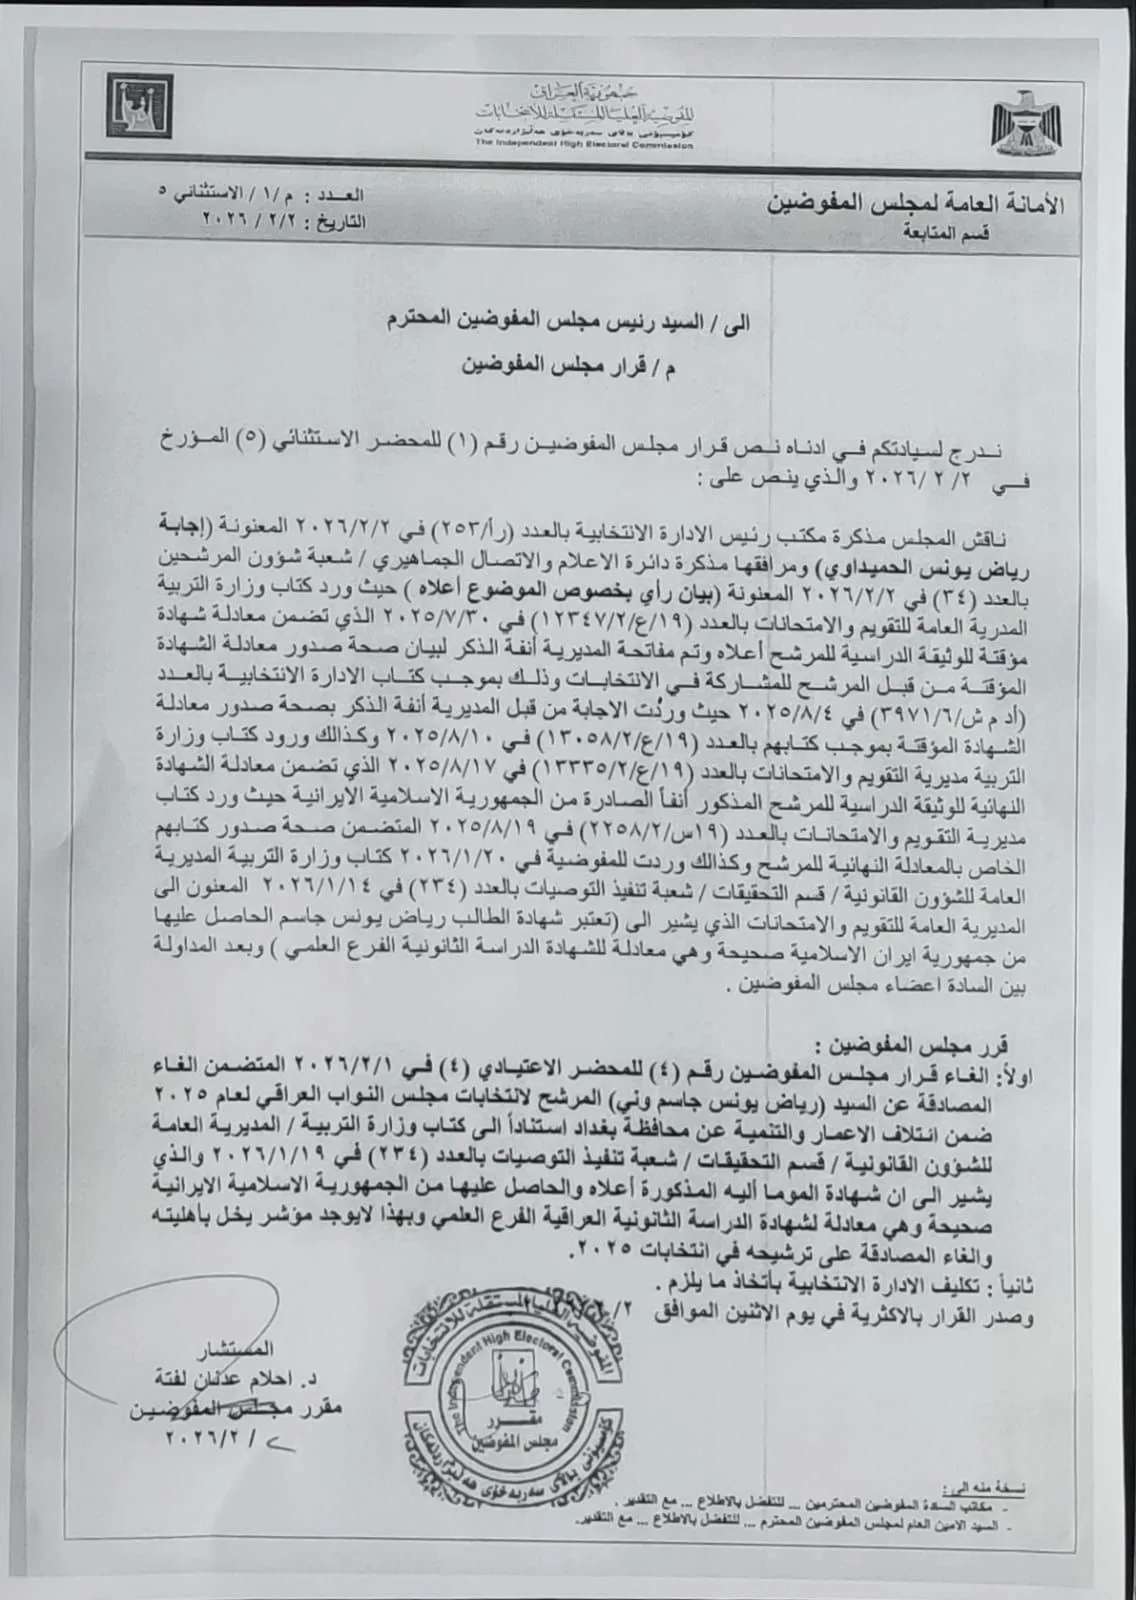 جمهورية العراق
المفوضية العليا المستقلة للانتخابات
كۆميسيۆنى باڵاى سەربەخۆى هەڵبژاردنەكان
The Independent High Electoral Commission
الأمانة العامة لمجلس المفوضين
قسم المتابعة
العدد : م /١/ الاستثنائي ٥
التاريخ : ٢/٢/ ٢٠٢٦
الى / السيد رئيس مجلس المفوضين المحترم
م / قرار مجلس المفوضين
ندرج لسيادتكم في ادناه نص قرار مجلس المفوضين رقم (١) للمحضر الاستثنائي (٥) المؤرخ
في ٢/ ٢ /٢٠٢٦ والذي ينص على :
ناقش المجلس مذكرة مكتب رئيس الادارة الانتخابية بالعدد (رأ/٢٥٣) في ٢٠٢٦/٢/٢ المعنونة (إجابة
رياض يونس الحميداوي) ومرافقها مذكرة دائرة الاعلام والاتصال الجماهيري / شعبة شؤون المرشحين
بالعدد (٣٤) في ٢٠٢٦/٢/٢ المعنونة (بيان رأي بخصوص الموضوع أعلاه ) حيث ورد كتاب وزارة التربية
المدرية العامة للتقويم والامتحانات بالعدد (١٩/ع/١٢٣٤٧/٢) في ٢٠٢٥/٧/٣٠ الذي تضمن معادلة شهادة
مؤقتة للوثيقة الدراسية للمرشح أعلاه وتم مفاتحة المديرية أنفة الذكر لبيان صحة صدور معادلة الشهادة
المؤقتة من قبل المرشح للمشاركة في الانتخابات وذلك بموجب كتاب الادارة الانتخابية بالعدد
(أد م ش/٣٩٧١/٦) في ٢٠٢٥/٨/٤ حيث وردُت الاجابة من قبل المديرية أنفة الذكر بصحة صدور معادلة
الشهادة المؤقتة بموجب كتابهم بالعدد (١٩/ع/١٣٠٥٨/٢) في ٢٠٢٥/٨/١٠ وكذالك ورود كتاب وزارة
التربية مديرية التقويم والامتحانات بالعدد (١٩/ع/١٣٣٣٥/٢) في ٢٠٢٥/٨/١٧ الذي تضمن معادلة الشهادة
النهائية للوثيقة الدراسية للمرشح المذكور أنفاً الصادرة من الجمهورية الاسلامية الايرانية حيث ورد كتاب
مديرية التقويم والامتحانات بالعدد (١٩س/٢٢٥٨/٢) في ٢٠٢٥/٨/١٩ المتضمن صحة صدور كتابهم
الخاص بالمعادلة النهائية للمرشح وكذالك وردت للمفوضية في ٢٠٢٦/١/٢٠ كتاب وزارة التربية المديرية
العامة للشؤون القانونية / قسم التحقيقات / شعبة تنفيذ التوصيات بالعدد (٢٣٤) في ٢٠٢٦/١/١٤ المعنون الى
المديرية العامة للتقويم والامتحانات الذي يشير الى (تعتبر شهادة الطالب رياض يونس جاسم الحاصل عليها
من جمهورية ايران الاسلامية صحيحة وهي معادلة للشهادة الدراسة الثانونية الفرع العلمي ) وبعد المداولة
بين السادة اعضاء مجلس المفوضين .
قرر مجلس المفوضين :
اولاً: الغاء قرار مجلس المفوضين رقم (٤) للمحضر الاعتيادي (٤) في ٢٠٢٦/٢/١ المتضمن الغاء
المصادقة عن السيد (رياض يونس جاسم وني) المرشح لانتخابات مجلس النواب العراقي لعام ٢٠٢٥
ضمن ائتلاف الاعمار والتنمية عن محافظة بغداد استناداً الى كتاب وزارة التربية / المديرية العامة
للشؤون القانونية / قسم التحقيقات / شعبة تنفيذ التوصيات بالعدد (٢٣٤) في ٢٠٢٦/١/١٩ والذي
يشير الى ان شهادة الموما أليه المذكورة أعلاه والحاصل عليها من الجمهورية الاسلامية الايرانية
صحيحة وهي معادلة لشهادة الدراسة الثانونية العراقية الفرع العلمي وبهذا لايوجد مؤشر يخل بأهليته
والغاء المصادقة على ترشيحه في انتخابات ٢٠٢٥.
ثانياً : تكليف الادارة الانتخابية بأتخاذ ما يلزم .
وصدر القرار بالاكثرية في يوم الاثنين الموافق ٢/
المفوضية العليا المستقلة للانتخابات
The Independent High Electoral Commission
مقرر
مجلس المفوضين
كۆميسيۆنى باڵاى سەربەخۆى هەڵبژاردنەكان
المستشار
د. احلام عدنان لفتة
مقرر مجلس المفوضين
٢ /٢٠٢٦/٢
نسخة منه الى :
- مكاتب السادة المفوضين المحترمين ... للتفضل بالاطلاع ... مع التقدير .
- السيد الامين العام لمجلس المفوضين المحترم ... للتفضل بالاطلاع ... مع التقدير.